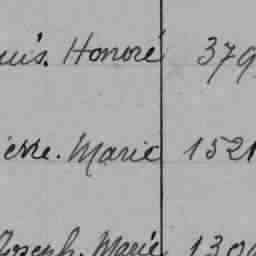 uis. Honoré 379
ierre. Marie 1521
Joseph. Marie 130